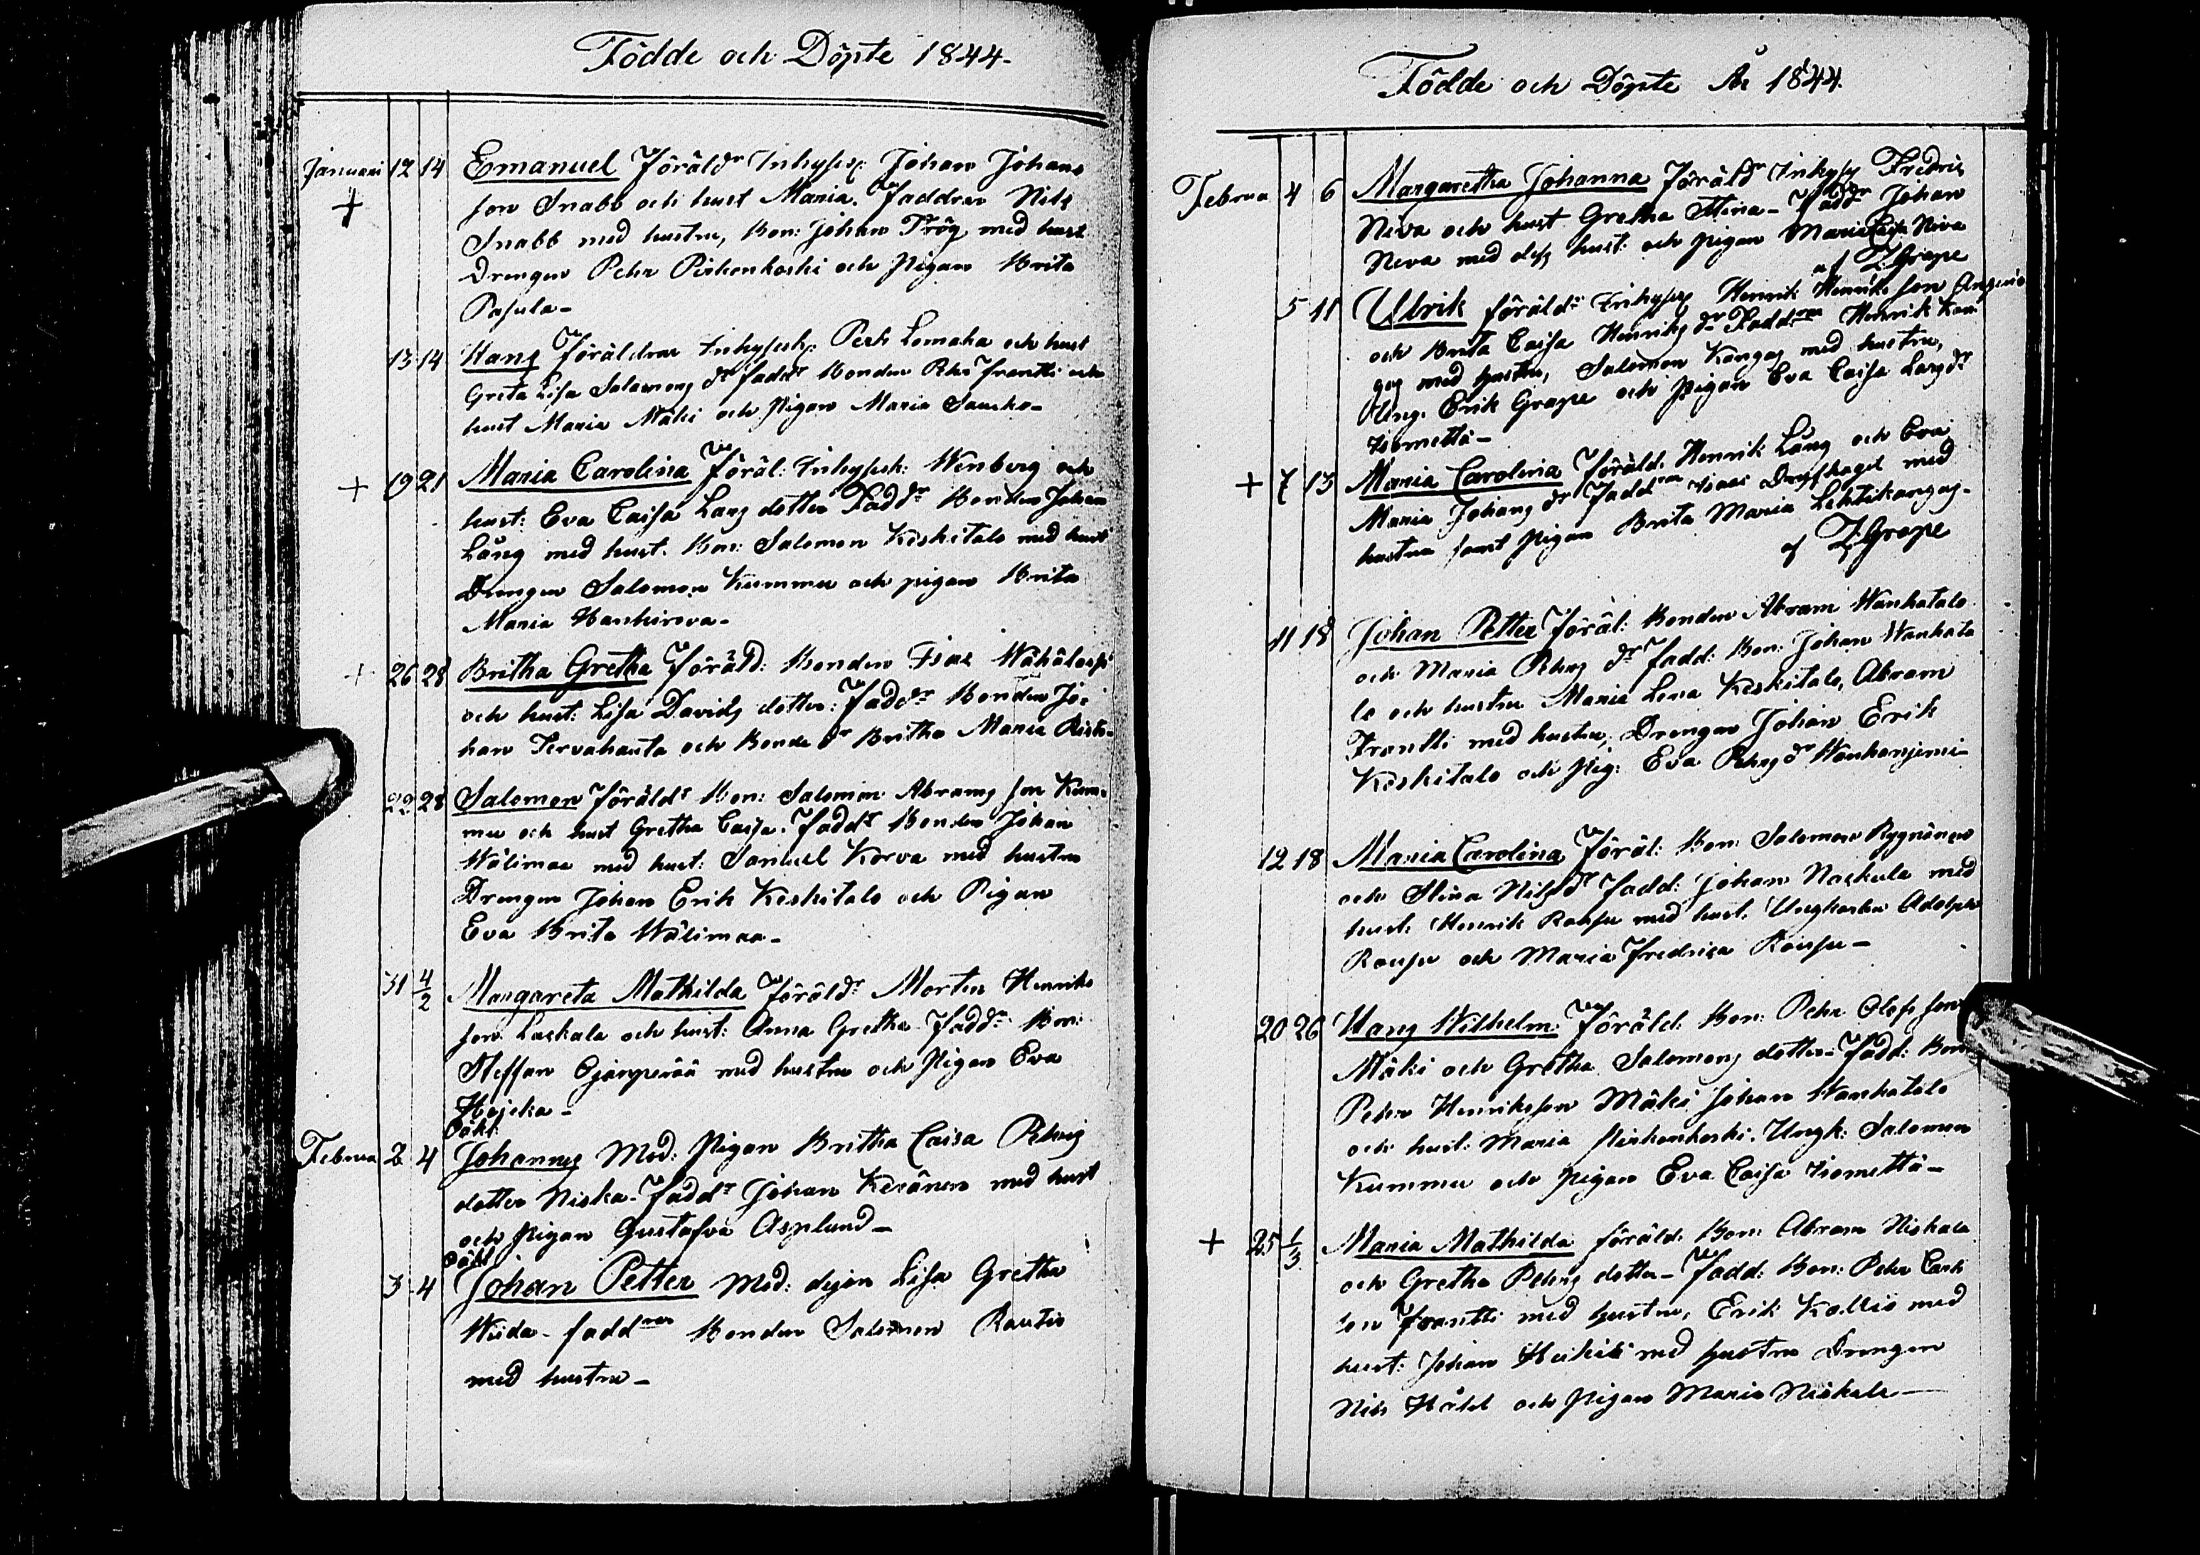 Födde och Döpte 1844.
Januari 12 14 Emanuel Föräldr Inhyses: Johan Johans
son Snabb och hust Maria. Faddrar Nils
Snabb med hustru, Bon: Johan Trög med hust
Drengen Pehr Pirkonkoski och Pigan Brita
Pasula-
13 14 Hans Föräldrar Inhyses: Pehr Lomaka och hust
Greta Lisa Salomons dr faddr Bonden Pehr Frantti och
hust Maria Mäki och Pigan Maria Saucko-
+ 19 21 Maria Carolina Föräl: Inhyses: Winberg och
hust: Eva Caisa Lars dotter Faddr Bonden Johan
Lång med hust. Bon: Salomon Keskitalo med hust
Drengen Salomon Kummu och pigan Brita
Maria
+ 26 28 Britha Gretha Föräld: Bonden Isac
och hust: Lisa Davids dotter: Faddr Bonden Jo-
han Tervahauta och Bonde dr Britha Maria
29 28 Salomon Föräldr Bon: Salomon Abrams son Kum-
mu och hust Gretha Caisa. Faddr Bonden Johan
Wälimaa med hust: Samuel Korva med hustru
Drengen Johan Erik Keskitalo och Pigan
Eva Brita Wälimaa-
31 4/2 Margareta Mathilda Föräldr Morten Henriks
son Laskala och hust: Anna Gretha Faddr Bon:
Steffan med hustru och Pigan Eva
Hojeka-
oäkt
Februa 2 4 Johannes Mod: Pigan Britha Caisa Pehrs
dotter Niska. Faddr Johan Keränen med hust
och Pigan Gustafva Asplund-
oäkt
3 4 Johan Petter Mod: Lisa Gretha
Wiida- faddrar Bonden Salomon Rautio
med hustru-
Födde och Döpte År 1844.
Februa 4 6 Margaretha Johanna Föräldr Inhyses Fredric
Neva och hust Gretha Stina- Faddr Johan
Neva med dess hust: och pigan Maria Lisa Neva
af Z Grape
5 11 Ulrik föräldr Inhyses Henrik Henriks son Angeria
och Brita Caisa Henriks dr Faddrar Henrik Kan
gas med hustru, Salomon Kangas med hustru,
Ung. Erik Grape och pigan Eva Caisa Lars dr
Liometta-
+ 7 13 Maria Carolina Föräld: Henrik Lång och Eva
Maria Johans dr Faddrar Isac med
hustru samt pigan Brita Maria Lehtikangas-
af Z Grape
11 18 Johan Petter Föräl: Bonden Abram Wanhatalo
och Maria Pehrs dr fadd: Bon: Johan Wanhata
lo och hustru Maria Lena Keskitalo, Abram
Frantti med hustru, Drengen Johan Erik
Keskitalo och Pig: Eva Pehrs dr Wanhaniemi-
12 18 Maria Carolina Föräl: Bon: Salomon
och Stina Nils dr fadd: Johan Naskula med
hust: Henrik Rousu med hust. Ungkarlen Adolph
Rousu och Maria Fredrica Rousu-
20 26 Hans Wilhelm Föräld: Bon: Pehr Olofs son
Mäki och Gretha Salomons dotter- Fadd: Bon
Pehr Henriksson Mäki Johan Wanhatalo
och hust: Maria Pirkonkoski. Ungk: Salomon
Kummu och pigan Eva Caisa Liometta-
+ 25 1/3 Maria Mathilda föräld: Bon: Abram Niskala
och Gretha Pehrs dotter- Fadd: Bon: Pehr Carls
son Frantti med hustru, Erik Kallio med
hust: Johan Heikki med hustru Drengen
Nils och Pigan Maria Niskala-